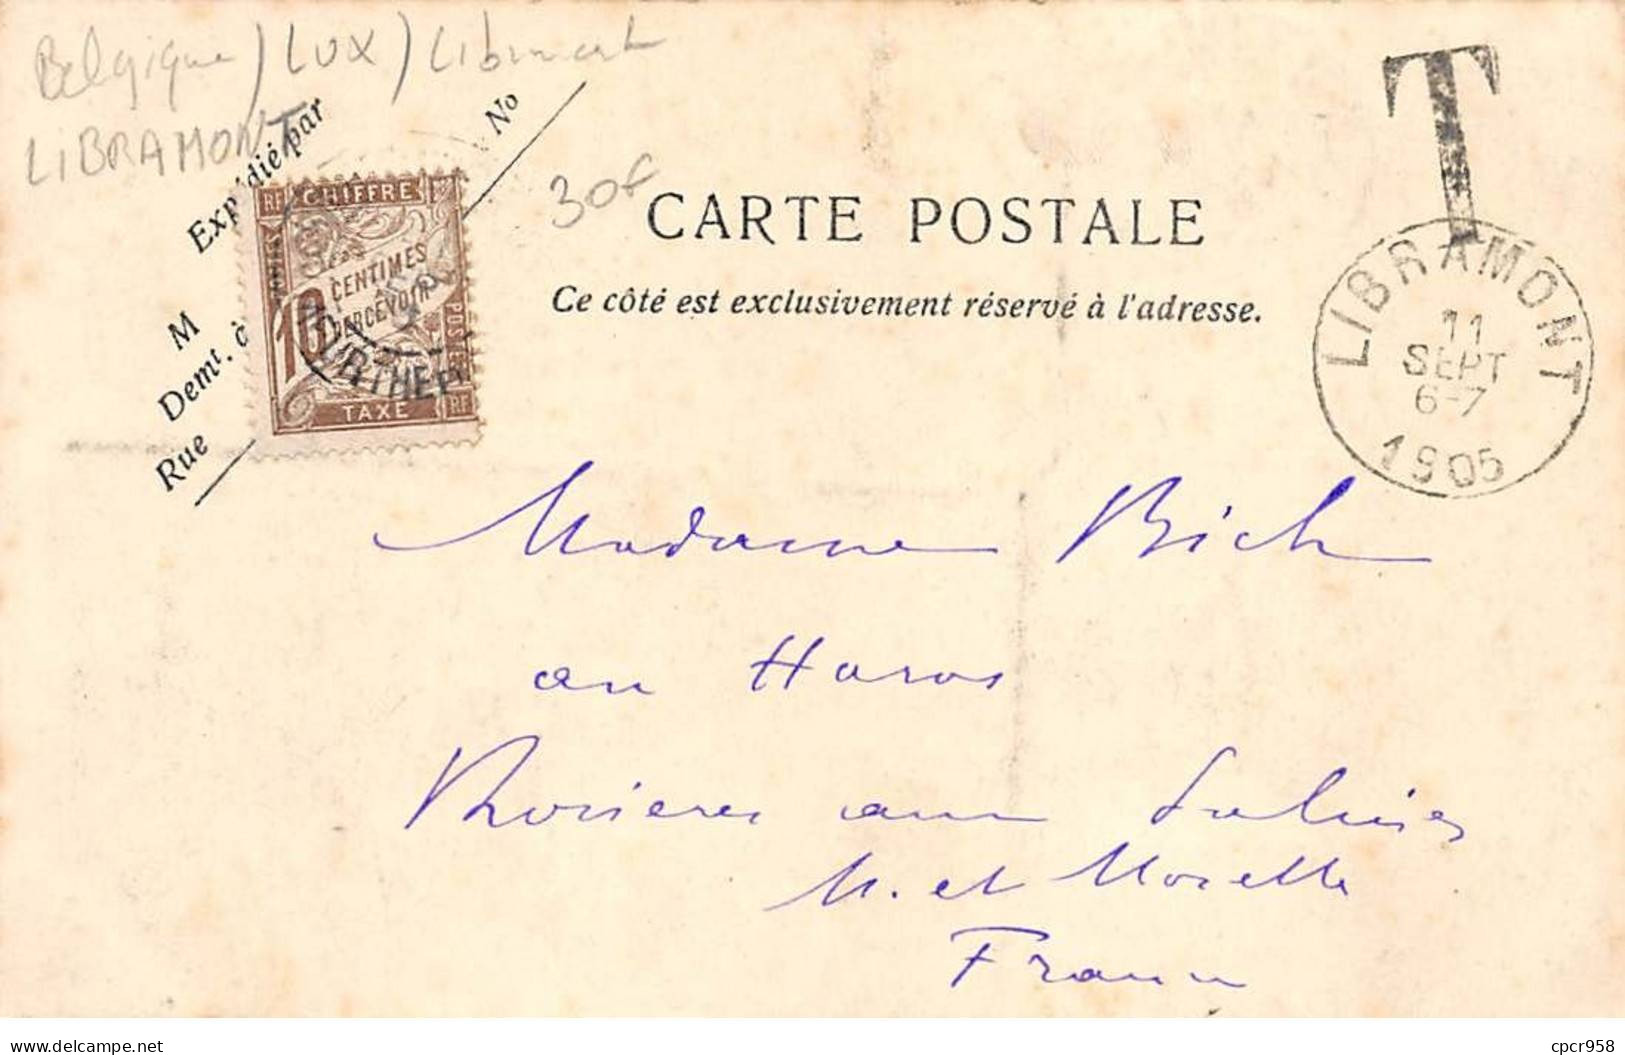 Belgique / LUX / Libramont
LIBRAMONT
Expédié par
No
M
Demt. à
Rue
RF CHIFFRE
10 CENTIMES
À
PERCEVOIR
POSTES
TAXE RF
MEURTHE
30f
CARTE POSTALE
Ce côté est exclusivement réservé à l'adresse.
T
LIBRAMONT
11
SEPT
6-7
1905
Madame Bich
au Haras
Rosieres aux Salines
M. et Moselle
France
www.delcampe.net
cpcr958